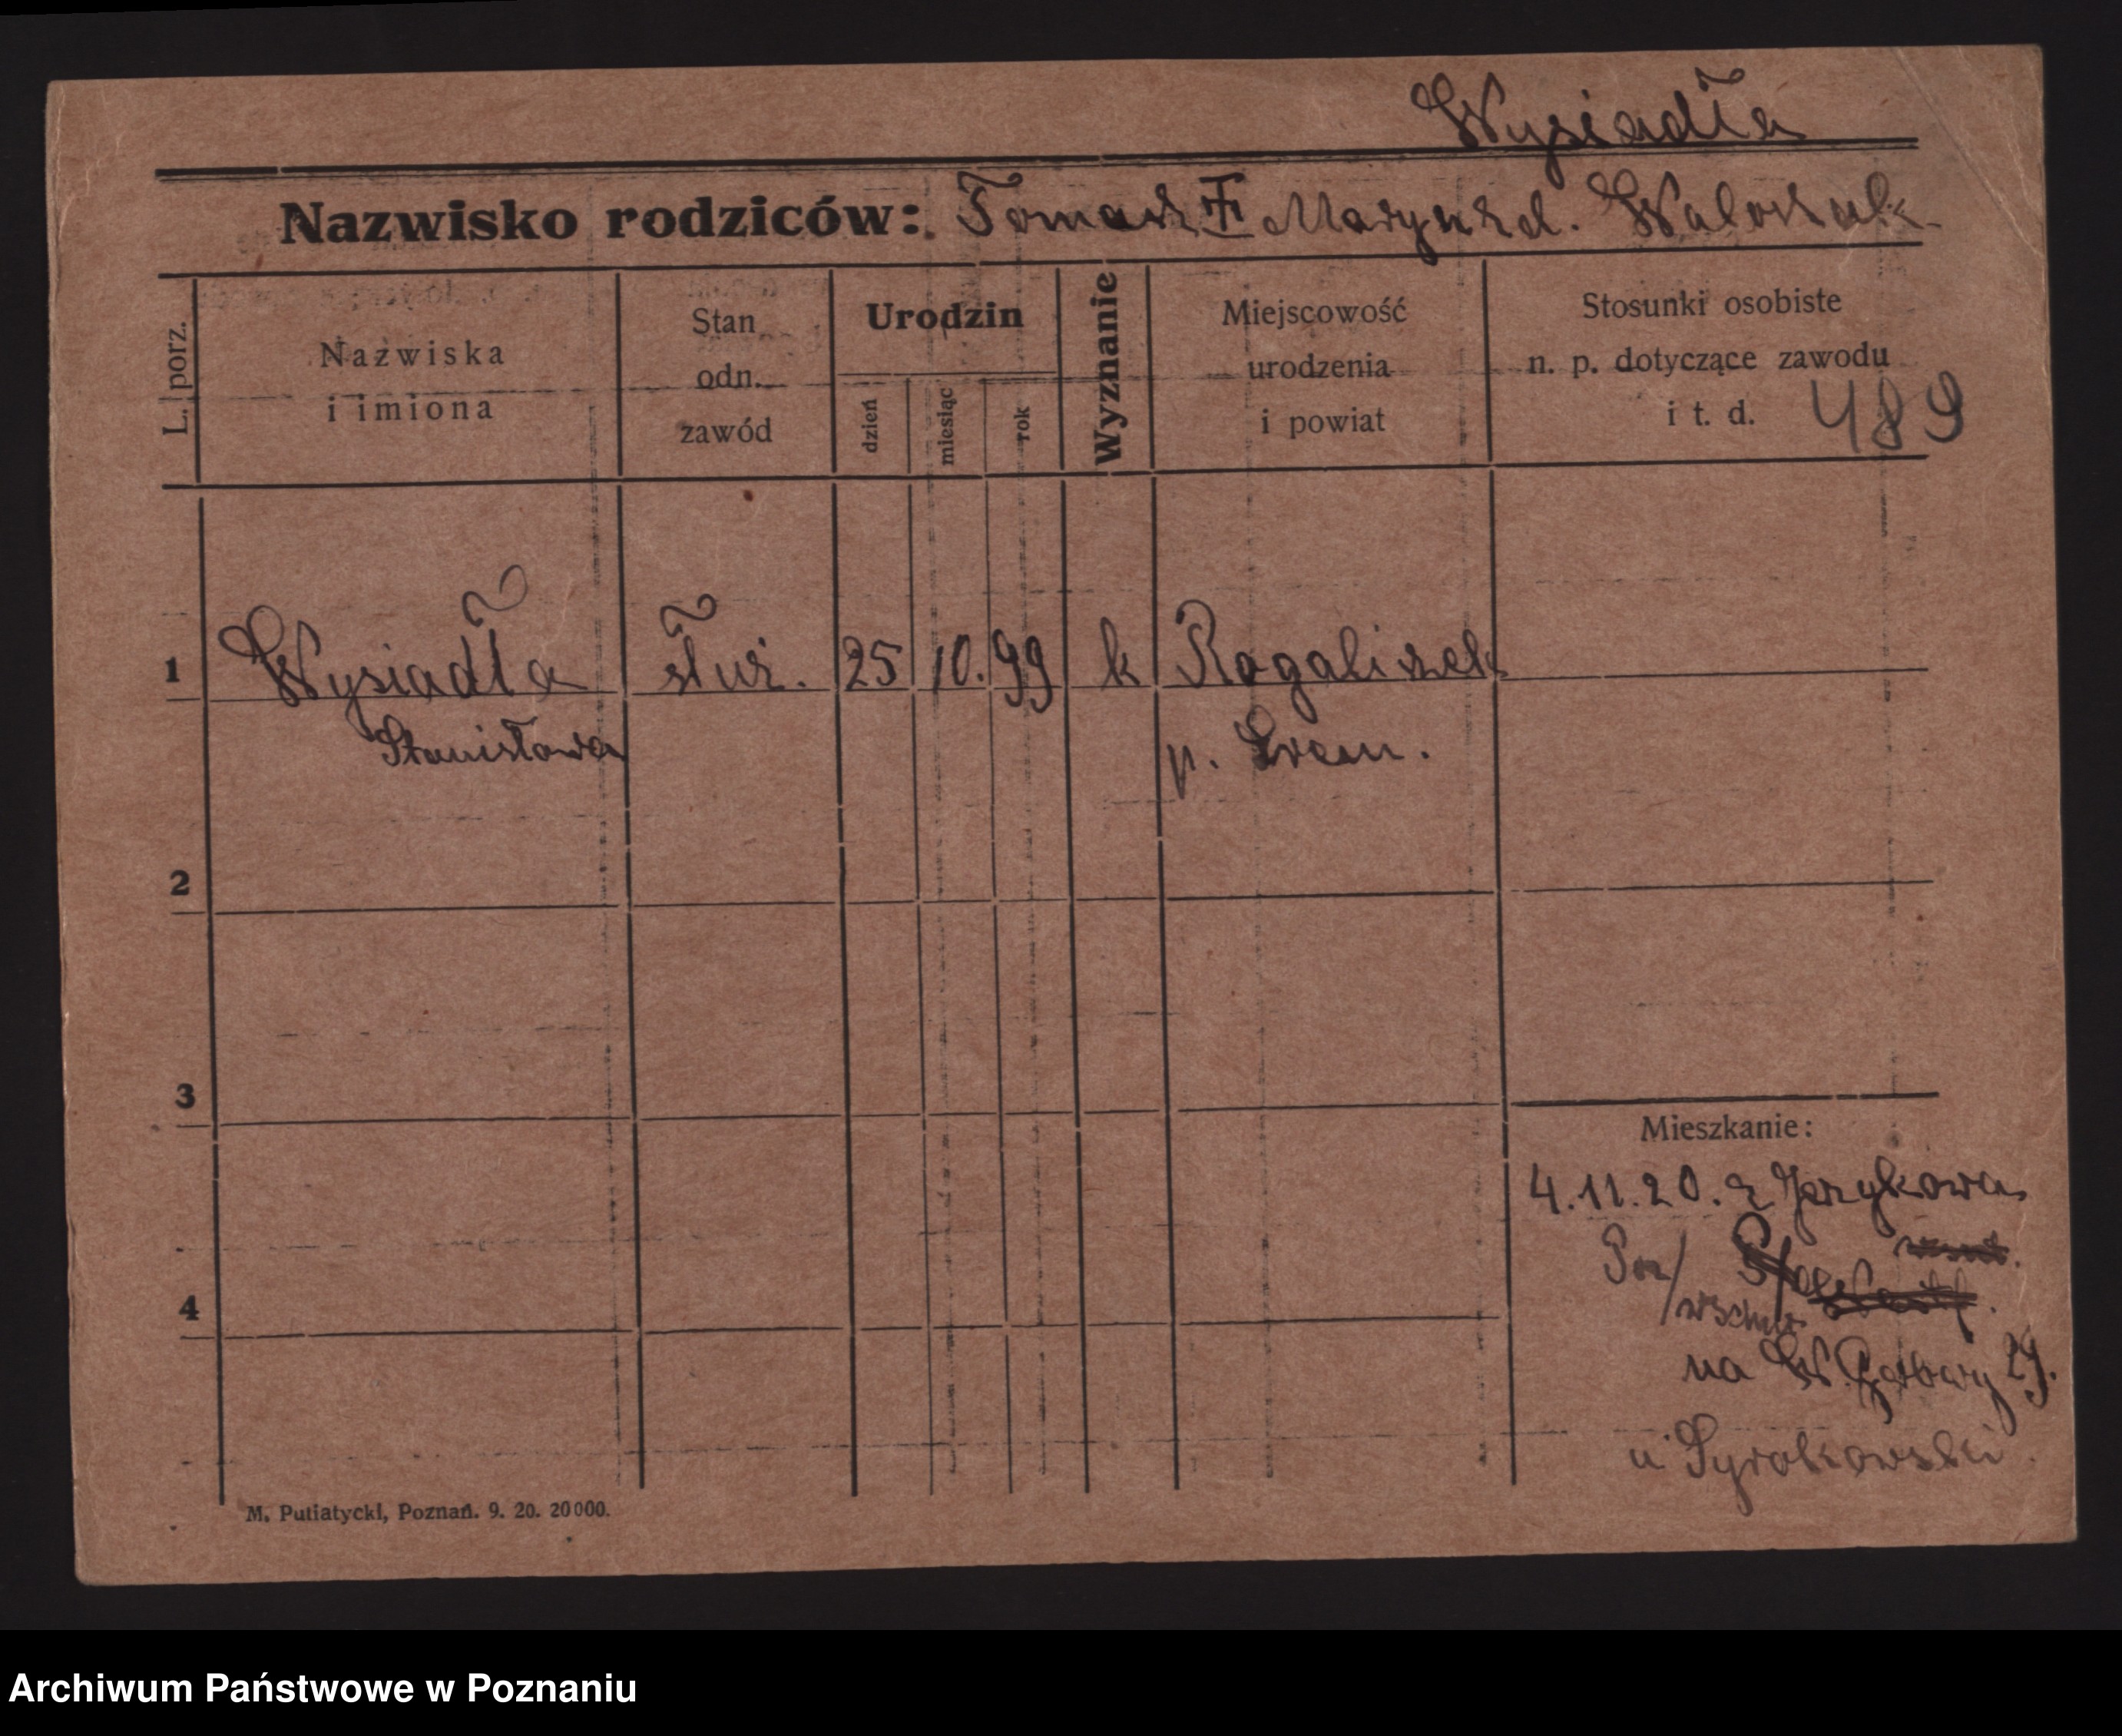 Wysiadła
Nazwisko rodziców: Tomasz Ŧ Maryn zd. Waloszek
L. porz.
Nazwiska
i imiona
Stan
odn.
zawód
Urodzin
dzień
miesiąc
rok
Wyznanie
Miejscowość
urodzenia
i powiat
Stosunki osobiste
n. p. dotyczące zawodu
i t. d. 489
1 Wysiadła służ. 25 10. 99 k Rogalinek
Stanisława p. Śrem.
2
3
4
Mieszkanie:
4.11.20. z Jerzykowa
Poz/
na W. Garbary 29.
u Syrokowski
M. Putiatycki, Poznań. 9. 20. 20000.
Archiwum Państwowe w Poznaniu